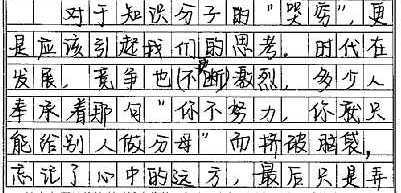 对于知识分子的“哭穷”，更
是应该引起我们的思考。时代在
发展，竞争也更激烈，多少人
奉承着那句“你不努力，你就只
能给别人做分母”而挤破脑袋，
忘记了心中的远方，最后只是弄